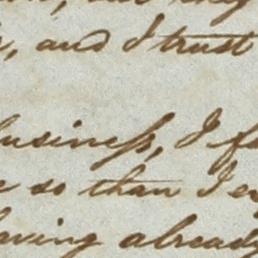 and I trust
business, I
so than I
having already